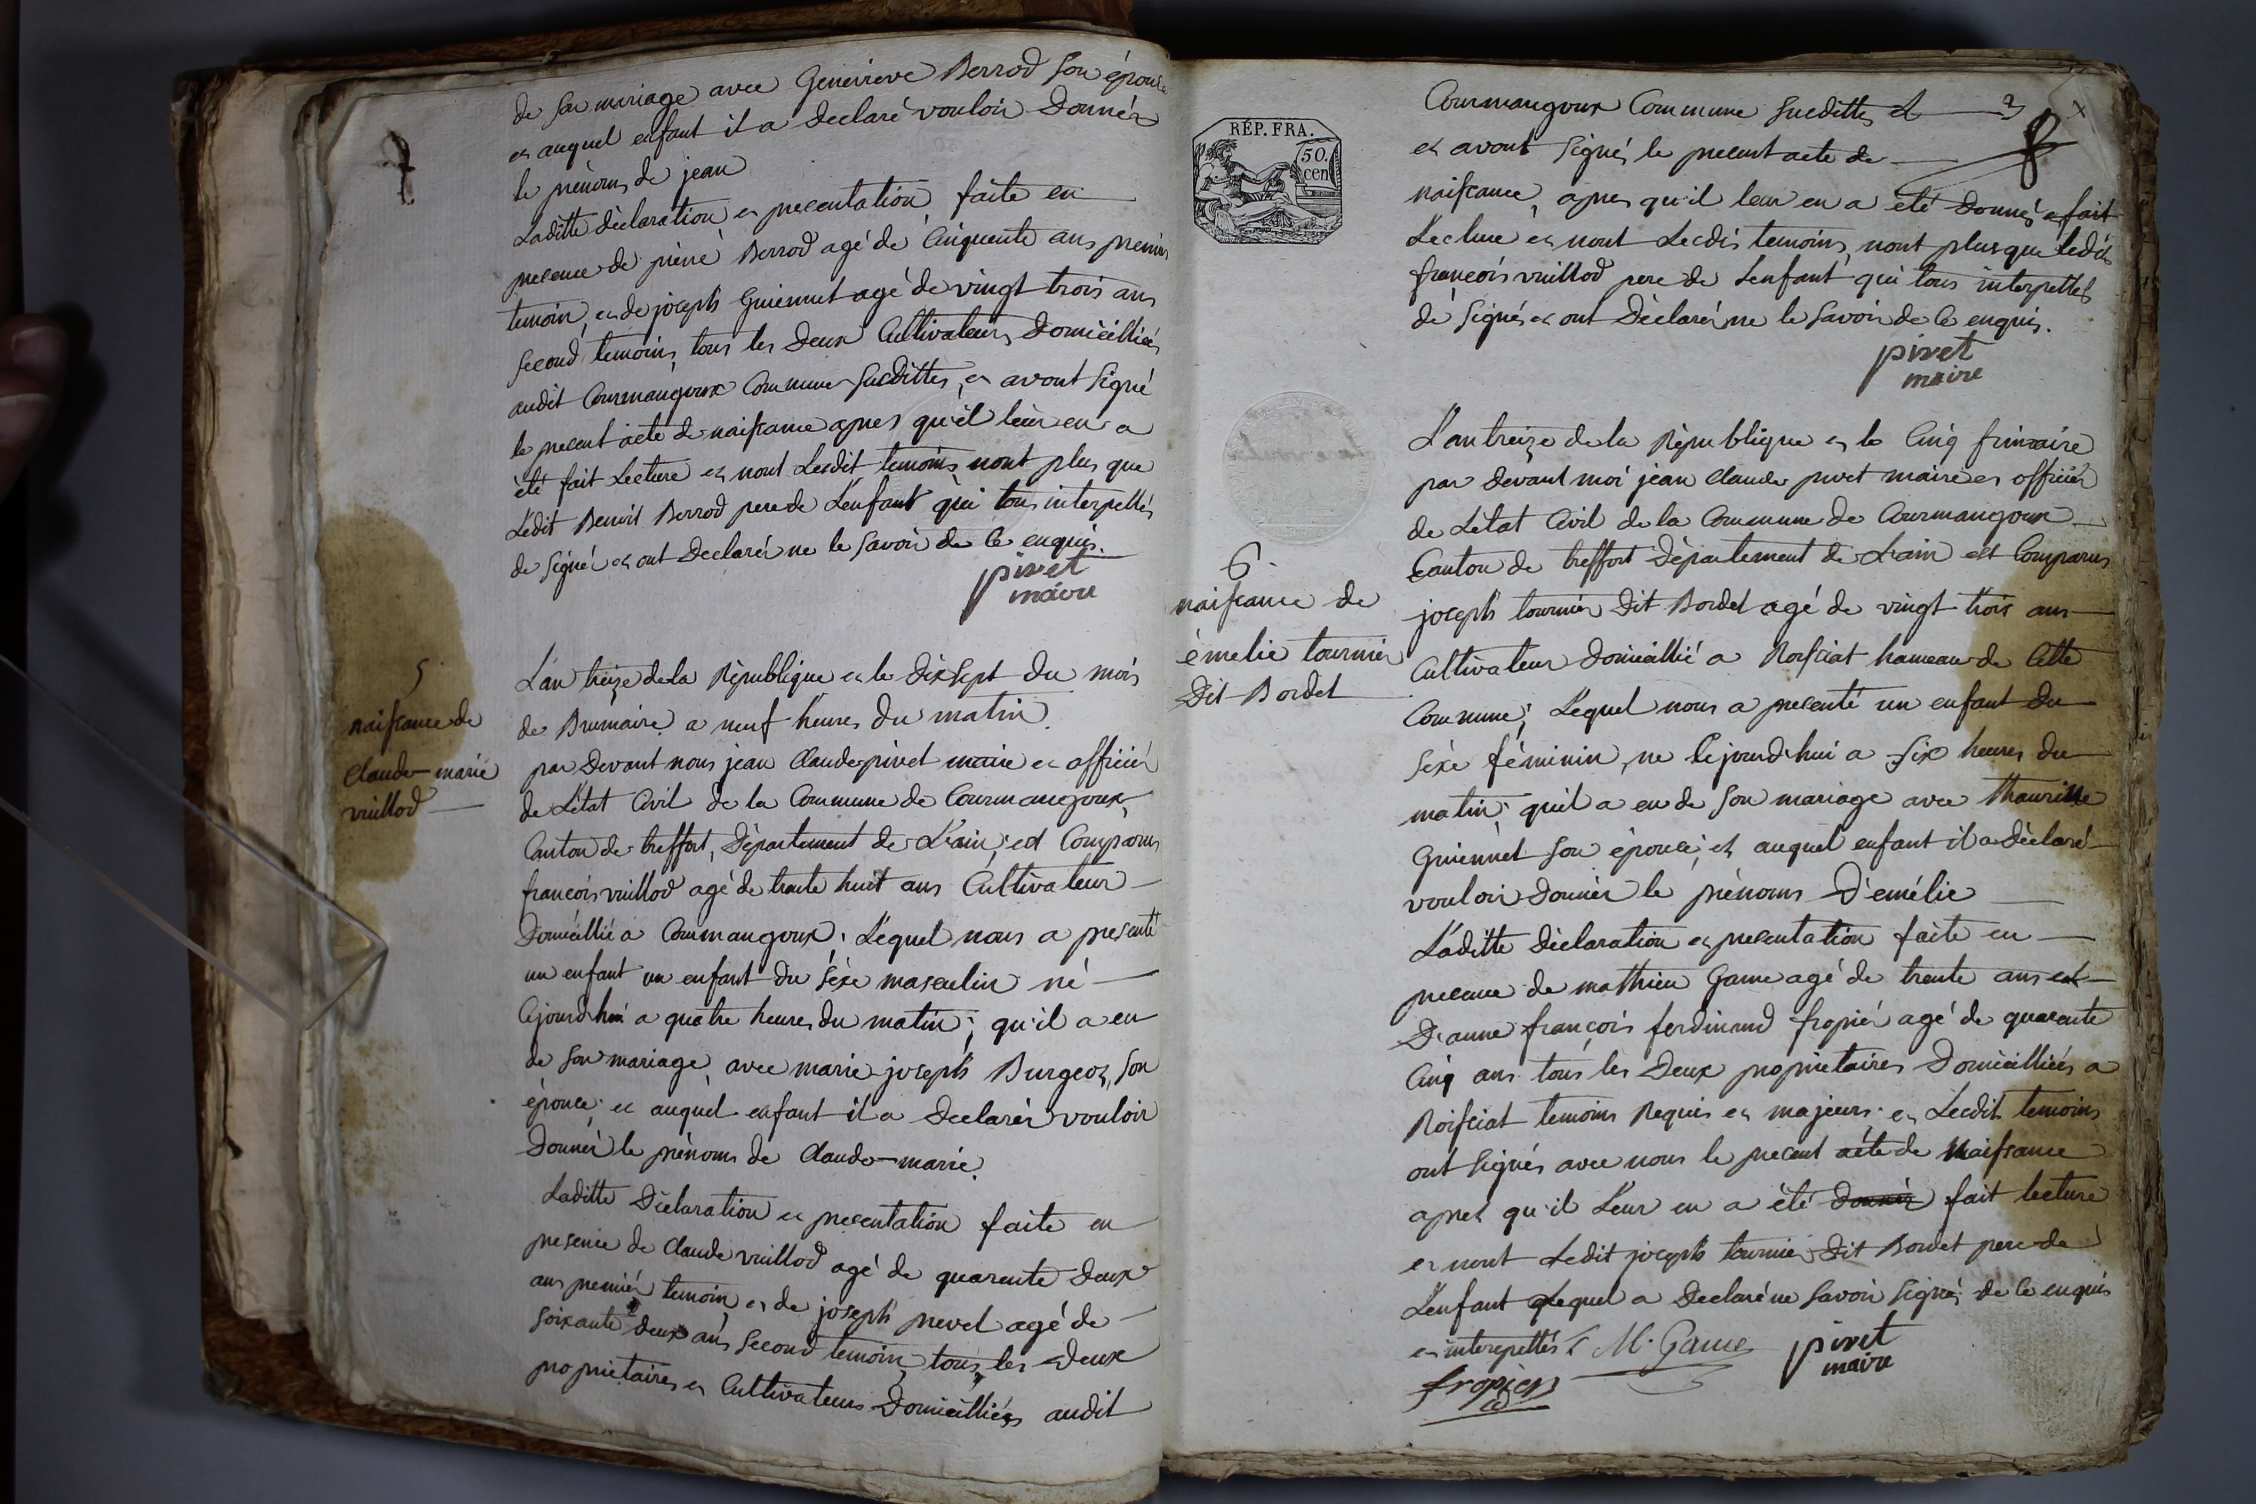 de son mariage avec Genevieve Berrod son épouse
et auquel enfant il a declaré vouloir donnér
le prénoms de jean
Laditte déclaration et presentation faite en
presence de pierre Berrod agé de Cinquente ans premier
temoin, et de joseph Guiennet agé de vingt trois ans
second temoins, tous les deux Cultivateurs domicilliés
audit Courmangoux Commune Susdittes, et avont Signé
le present acte de naissance apres qu'il leur en a
été fait Lecture et nont Lesdit temoins nont plus que
Ledit Benoit Berrod pere de Lenfant qui tous interpellés
de Signér et ont Declarér ne le savoir de Ce enquis.
pivet
maire
5
naissance de
Claude-marie
vuillod
L'an treize de la République et le dix sept du mois
de Brumaire a neuf heures du matin
par devant nous jean Claude pivet maire et officiér
de L'état Civil de la Commune de Courmangoux
Canton de treffort, Département de L'ain, est Comparus
francois vuillod agé de trante huit ans Cultivateur
Domicillié a Courmangoux, Lequel nous a presenté
un enfant un enfant du séxe masculin né
Cejourdhui a quatre heures du matin; qu'il a eu
de son mariage, avec marie joseph Burgeot, son
épouce; et auquel enfant il a declarér vouloir
Donnér le prénoms de Claude-marie.
Laditte Déclaration et presentation faite en
presence de Claude vuillod agé de quarente deux
ans premiér temoin, et de joseph prevet agé de
soixante deux ans second temoin, tous les deux
proprietaires et Cultivateurs domicilliés audit
2
Courmangoux Commune Susdittes et
et avont Signés le present acte de
RÉP. FRA.
50.
cen
naissance, apres qu'il leur en a été donnés a fait
Lecture et nont Lesdis temoins, nont plus que Ledit
francois vuillod pere de Lenfant qui tous interpellés
de Signés et ont Déclarér ne le Savoir de Ce enquis.
pivet
maire
6.
naissance de
émelie tournier
Dit Bordet
L'an treize de la République et le Cinq frimaire
par devant moi jean Claude pivet maire et officiér
de L'état Civil de la Commune de Courmangoux
Canton de treffort Département de L'ain est Comparus
joseph tourniér Dit Bordet agé de vingt trois ans
Cultivateur domicillié a Roissiat hameau de Cette
Commune; Lequel nous a presenté un enfant du
séxe féminin, ne Cejourd'hui a six heures du
matin; quil a eu de son mariage avec
Guiennet son épouce; et auquel enfant il a déclaré
vouloir donnér le prénoms D'emélie
Laditte déclaration et presentation faite en
presence de mathieu Game agé de trente ans et
D'anne françois ferdinand fropiér agé de quarente
Cinq ans tous les deux proprietaires domicilliés a
Roissiat temoins Requis et majeurs; et Lesdit temoins
ont signés avec nous le present acte de Naissance
apres qu'il Leur en a été donnér fait lecture
et nont Ledit joseph tourniér Dit Bordet pere de
Lenfant Lequel a Declaré ne Savoir Signér de Ce enquis
et interpellés M. Game
pivet
maire
fropier